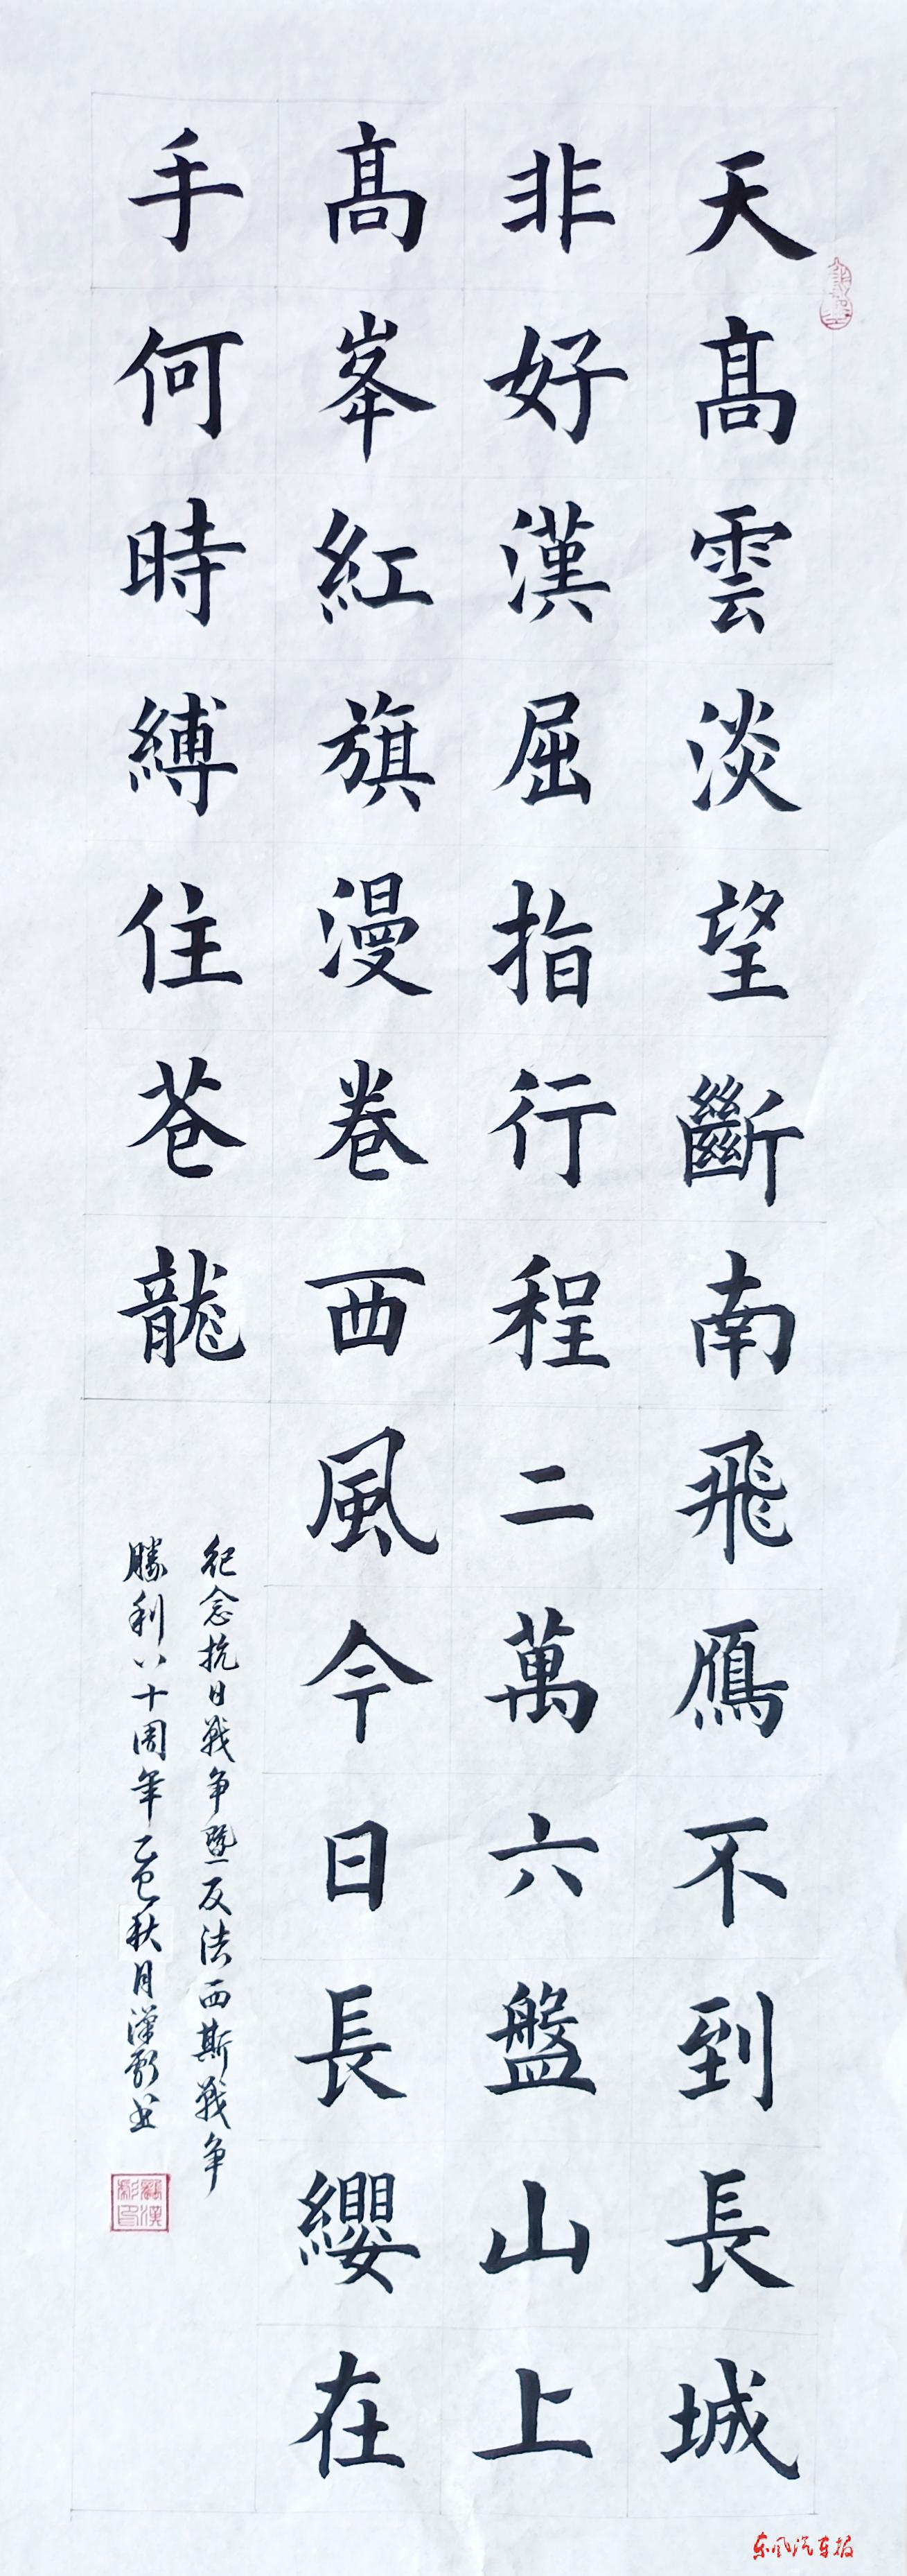 天高雲淡望斷南飛鴈不到長城
非好漢屈指行程二萬六盤山上
高峯紅旗漫卷西風今日長纓在
手何時縛住苍龍
纪念抗日战争暨反法西斯战争
勝利八十周年乙巳秋月漢彩书
东风汽车报